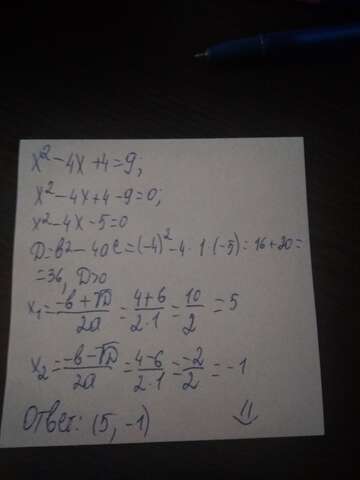 x²-4x+4=9;
x²-4x+4-9=0;
x²-4x-5=0
D=b²-4ac=(-4)²-4·1·(-5)=16+20=
=36, D>0
x₁=(-b+√D)/2a=(4+6)/(2·1)=10/2=5
x₂=(-b-√D)/2a=(4-6)/(2·1)=-2/2=-1
Ответ: (5, -1)